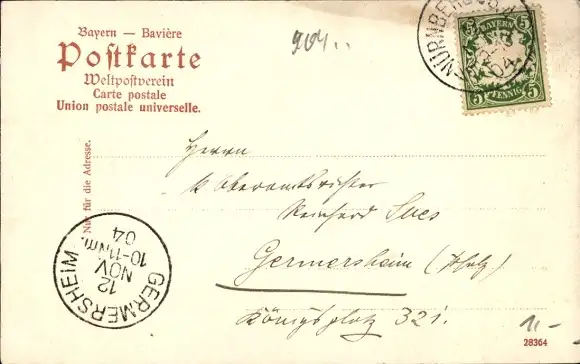 Bayern — Bavière
Postkarte
Weltpostverein
Carte postale
Union postale universelle.
904..
BAYERN
5 5
PFENNIG
5 5
Nur für die Adresse.
Herrn
k Oberamtsrichter
Reinhard
Germersheim (Pfalz)
Königsplatz 321.
GERMERSHEIM
12
NOV
10-11 Nm.
04
1,-
28364